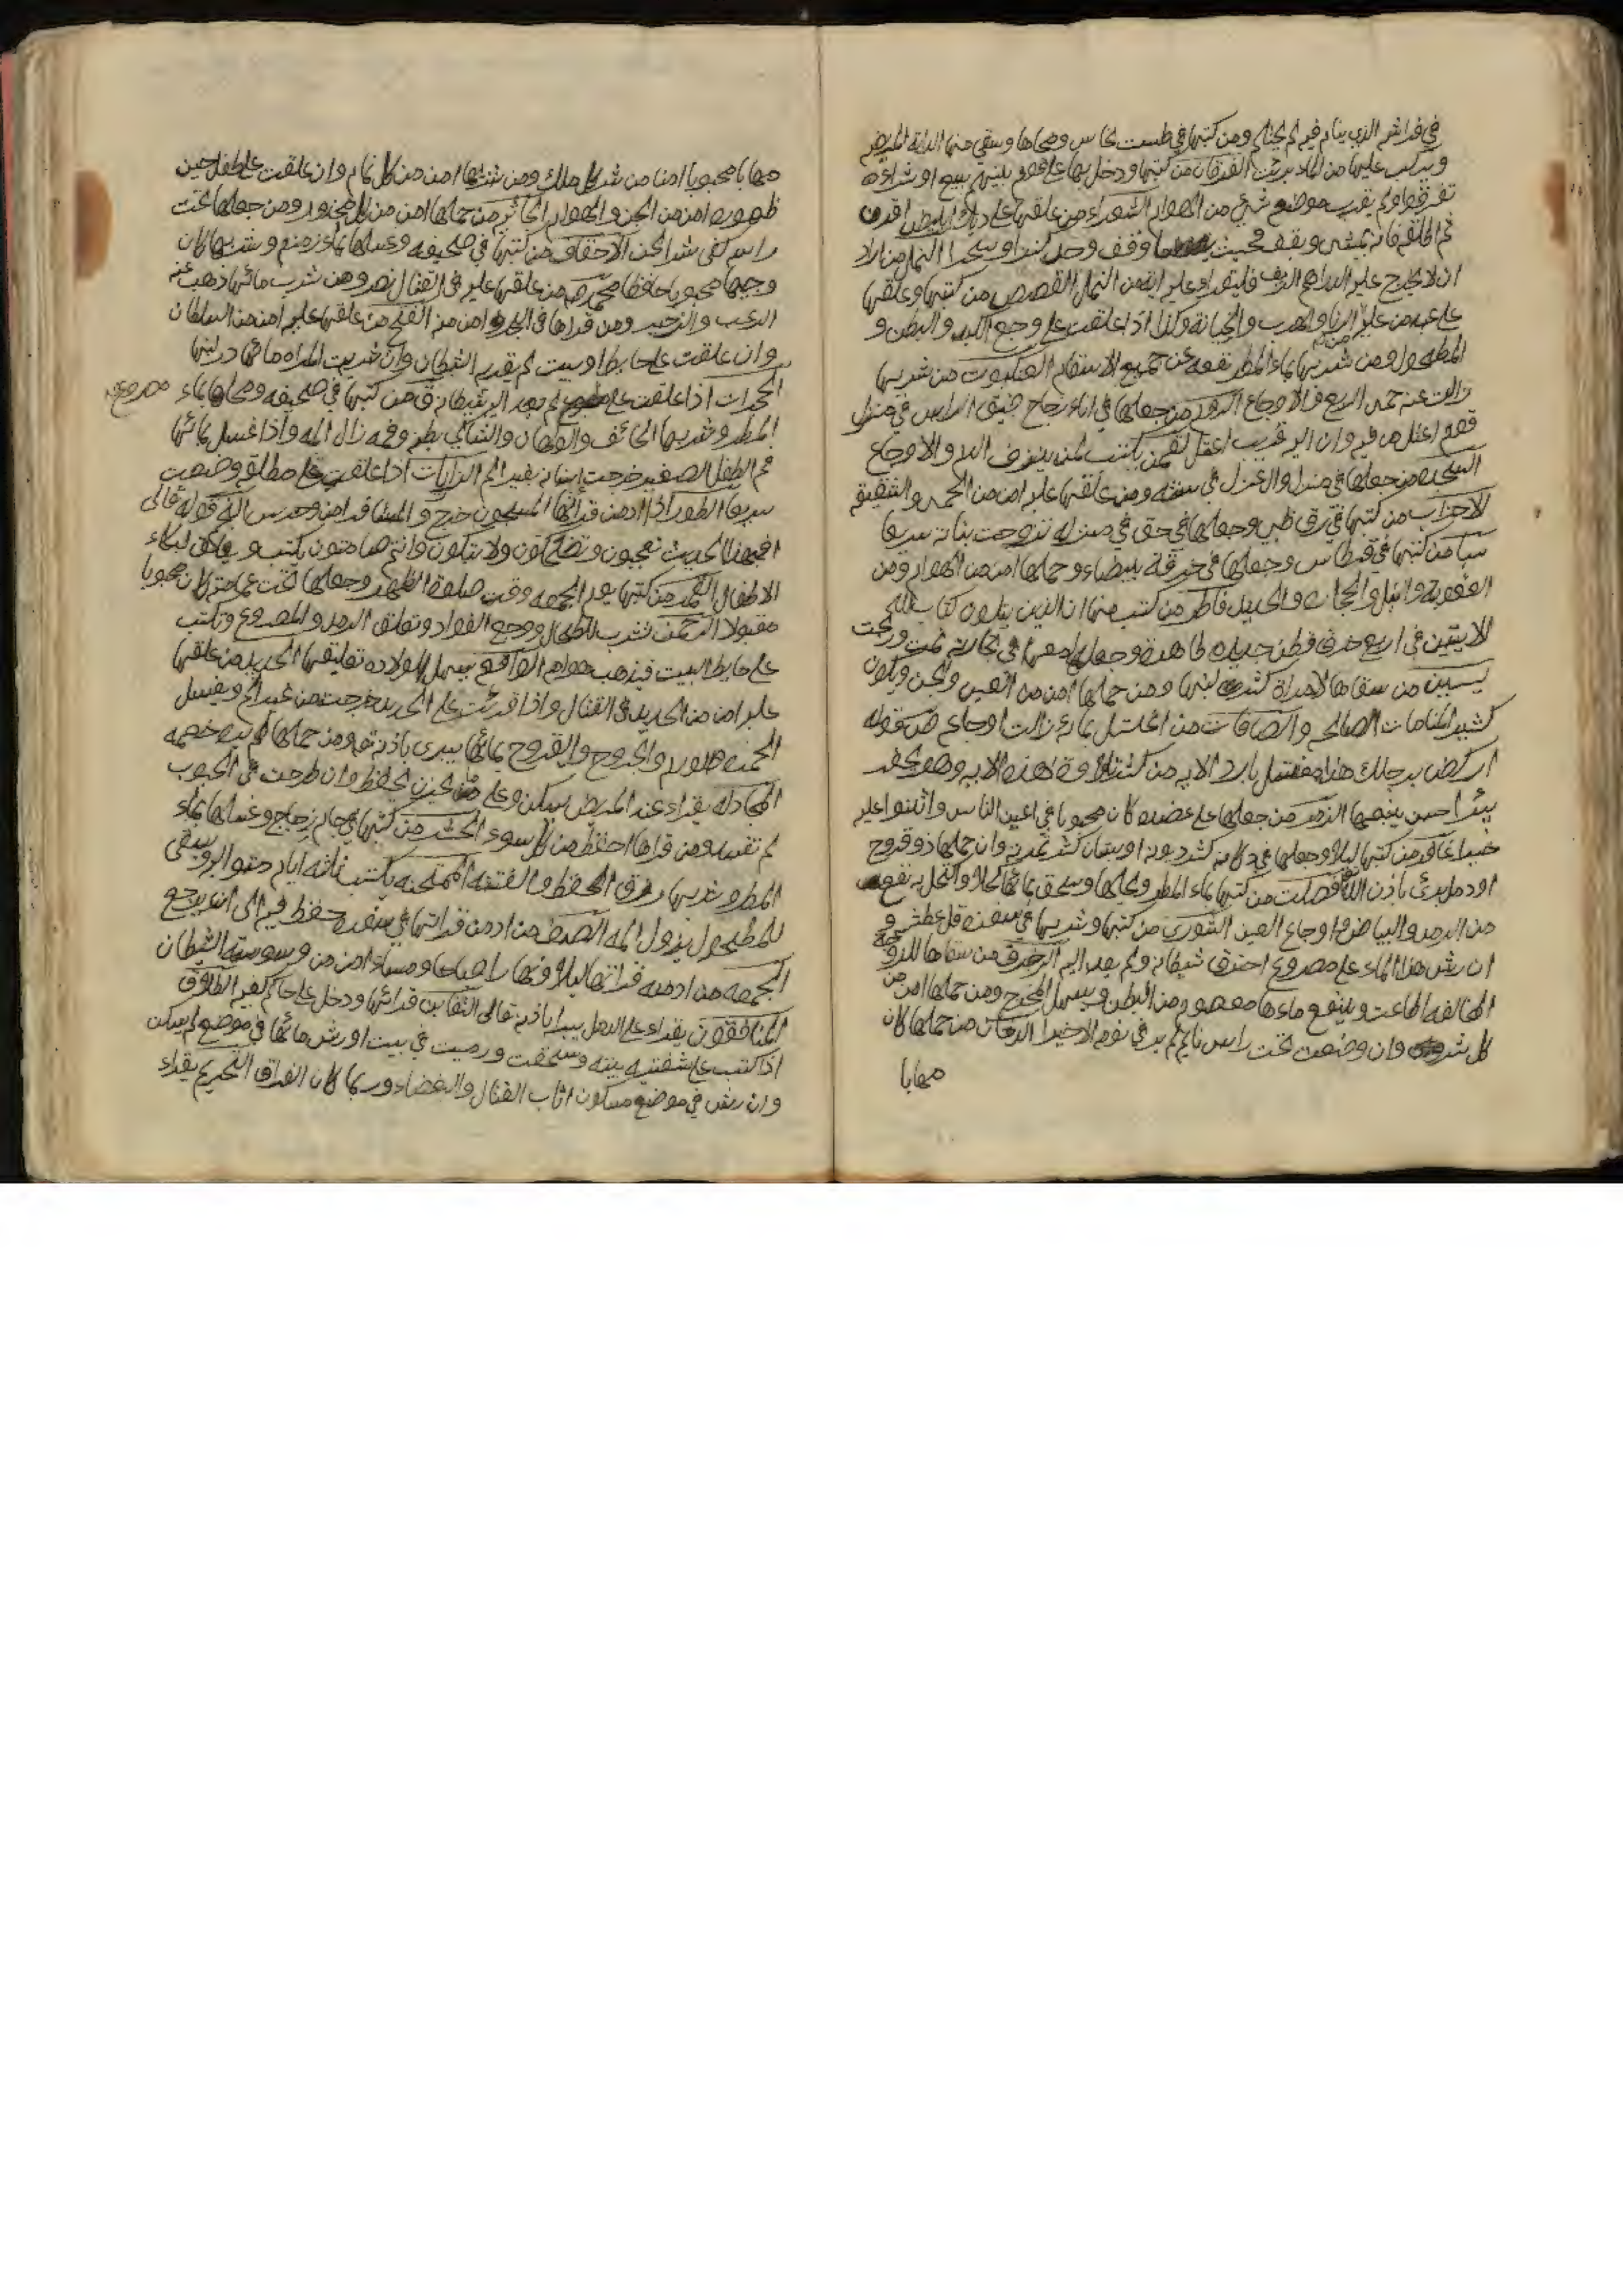 في فراشه الذي ينام فيه لم يحتلم ومن كتبها في طست نحاس ومحاها وسقي منها الدابة المريضه
ويرش عليها من الماء برئت الفرقان من كتبها ودخل بها على قوم بينهم بيع او شراء
تفرقوا ولم يقرب موضعه شي من الهوام الشعراء من علقها على ديك ابيض افرق
ثم اطلقه فانه يمشي ويقف فحيث ما وقف وجد كنزا او سحرا النمل من اراد
ان لا يخرج عليه الدراهم الزيف فليقراء عليه اية من النمل القصص من كتبها وعلقها
على عبد من عليه الزنا والهرب والخيانة وكذا اذا علقت على وجع الكبد والبطن و
المطحول ومن شربها بماء المطر نفعه من جميع الاسقام العنكبوت من شربها
زالت عنه حمى الربع والاوجاع الروم من جعلها في اناء زجاج ضيق الراس في منزل
قوم اعتل من فيه وان اليه غريب اعتل لقمن يكتب لمن ينزف الدم والاوجاع
السجده من جعلها في منزل وال عزل في سنته ومن علقها عليه امن من الحمى والشقيقه
الاحزاب من كتبها في رق ظبي وجعلها في حق في منزله تزوجت بناته سريعا
سبا من كتبها في قرطاس وجعلها في خرقة بيضاء وحملها امن من الهوام ومن
العقوبة والنبل والحجارة والحديد فاطر من كتب منها ان الذين يتلون كتاب الله
الايتين في اربع خرق قطن جديده طاهرة وجعلها معه في تجارته نمت وربحت
يسين من سقاها لامراة كثر لبنها ومن حملها امن من العين والجن ويكون
كثير المنامات الصالحه والصافات من اغتسل بمائه زالت اوجاعه ص قوله
اركض برجلك هذا مغتسل بارد الايه من كثر تلاوة هذه الايه وهو يحفر
بيرا حسن ينبعها الزمر من جعلها على عضده كان محبوبا في اعين الناس واثنوا عليه
خيرا غافر من كتبها ليلا وجعلها في دكانه كثر زبونه او بستان كثر ثمرته وان حملها ذو قروح
او دمل برئ باذن الله فصلت من كتبها بماء المطر ومحاها وسحق بمائها كحلا واكتحل به نفعه
من الرمد والبياض واوجاع العين الشورى من كتبها وشربها في سفره قل عطشه و
ان رش هذا الماء على مصروع احترق شيطانه ولم يعد اليه الزخرف من سقاها لزوجه
المخالفه اطاعت وينفع ماءها معصور من البطن ويسهل المخرج ومن حملها امن من
كل شر وان وضعت تحت راس نايم لم ير في نومه الا خيرا الدخان من حملها كان
مهابا
مهابا محبوبا امنا من شر كل ملك ومن شربها امن من كل نمام وان علقت على طفل حين
ظهوره امن من الجن والهوام الجاثيه من حملها امن من كل محذور ومن جعلها تحت
راسه كفي شر الجن الاحقاف من كتبها في صحيفه وغسلها بماء زمزم وشربها كان
وجيها محبوبا حافظا محمد من علقها عليه في القتال نصر ومن شرب مائها ذهب عنه
الرعب والزحير ومن قراها في البحر امن من الفتح من علقها عليه امن من السلطان
وان علقت على حايط او بيت لم يقربه الشيطان وان شربت المراه مائها در لبنها
الحجرات اذا علقت على مصروع لم يعد اليه شيطانه ق من كتبها في صحيفه ومحاها بماء
المطر وشربها الخائف والولهان والشاكي بطنه وفمه زال المه واذا غسل بمائها
فم الطفل الصغير خرجت اسنانه بغير الم الذاريات اذا علقت على مطلقه وضعت
سريعا الطور اذا ادمن قرائتها المسجون خرج والمسافر امن وحرس النجم قوله تعالى
افمن هذا الحديث تعجبون وتضحكون ولا تبكون وانتم سامدون يكتب ويعلق لبكاء
الاطفال القمر من كتبها يوم الجمعه وقت صلوة الظهر وجعلها تحت عمامته كان محبوبا
مقبولا الرحمن تشرب للطحال ووجع الفواد وتعلق للرمد والمصروع وتكتب
على حايط البيت فيذهب هوامه الواقعه يسهل للولاده تعليقها الحديد من علقها
عليه امن من الحديد في القتال واذا قرئت على الحديد خرجت من غير الم ويغسل
الحمره والورم والجروح والقروح بمائها يبرى باذنه تع ومن حملها لم يره خصمه
المجادله يقراء عند المريض يسكن وعلى ما يخزن يحفظ وان طرحت في الحبوب
لم تفسد ومن قراها احفظ من كل سوء الحشر من كتبها في جام زجاج وغسلها بماء
المطر وشربها رزق الحفظ والفتنه الممتحنه يكتب ثلاثه ايام متواليه ويسقى
للمطحول يزول المه الصف من ادمن قرائتها في سفره حفظ فيه الى ان يرجع
الجمعه من ادمن قرائتها ليلا ونهارا صباحا ومساء امن من وسوسة الشيطان
المنافقون يقراء على الدمل يبرا باذنه تعالى التغابن من قرائها ودخل على حاكم كفيه الطلاق
اذا كتب وسحقت ورميت في بيت او رش مائها في موضع لم يسكن
وان رش في موضع مسكون اثار القتال والبغضاء وربما كان الفراق التحريم يقراء